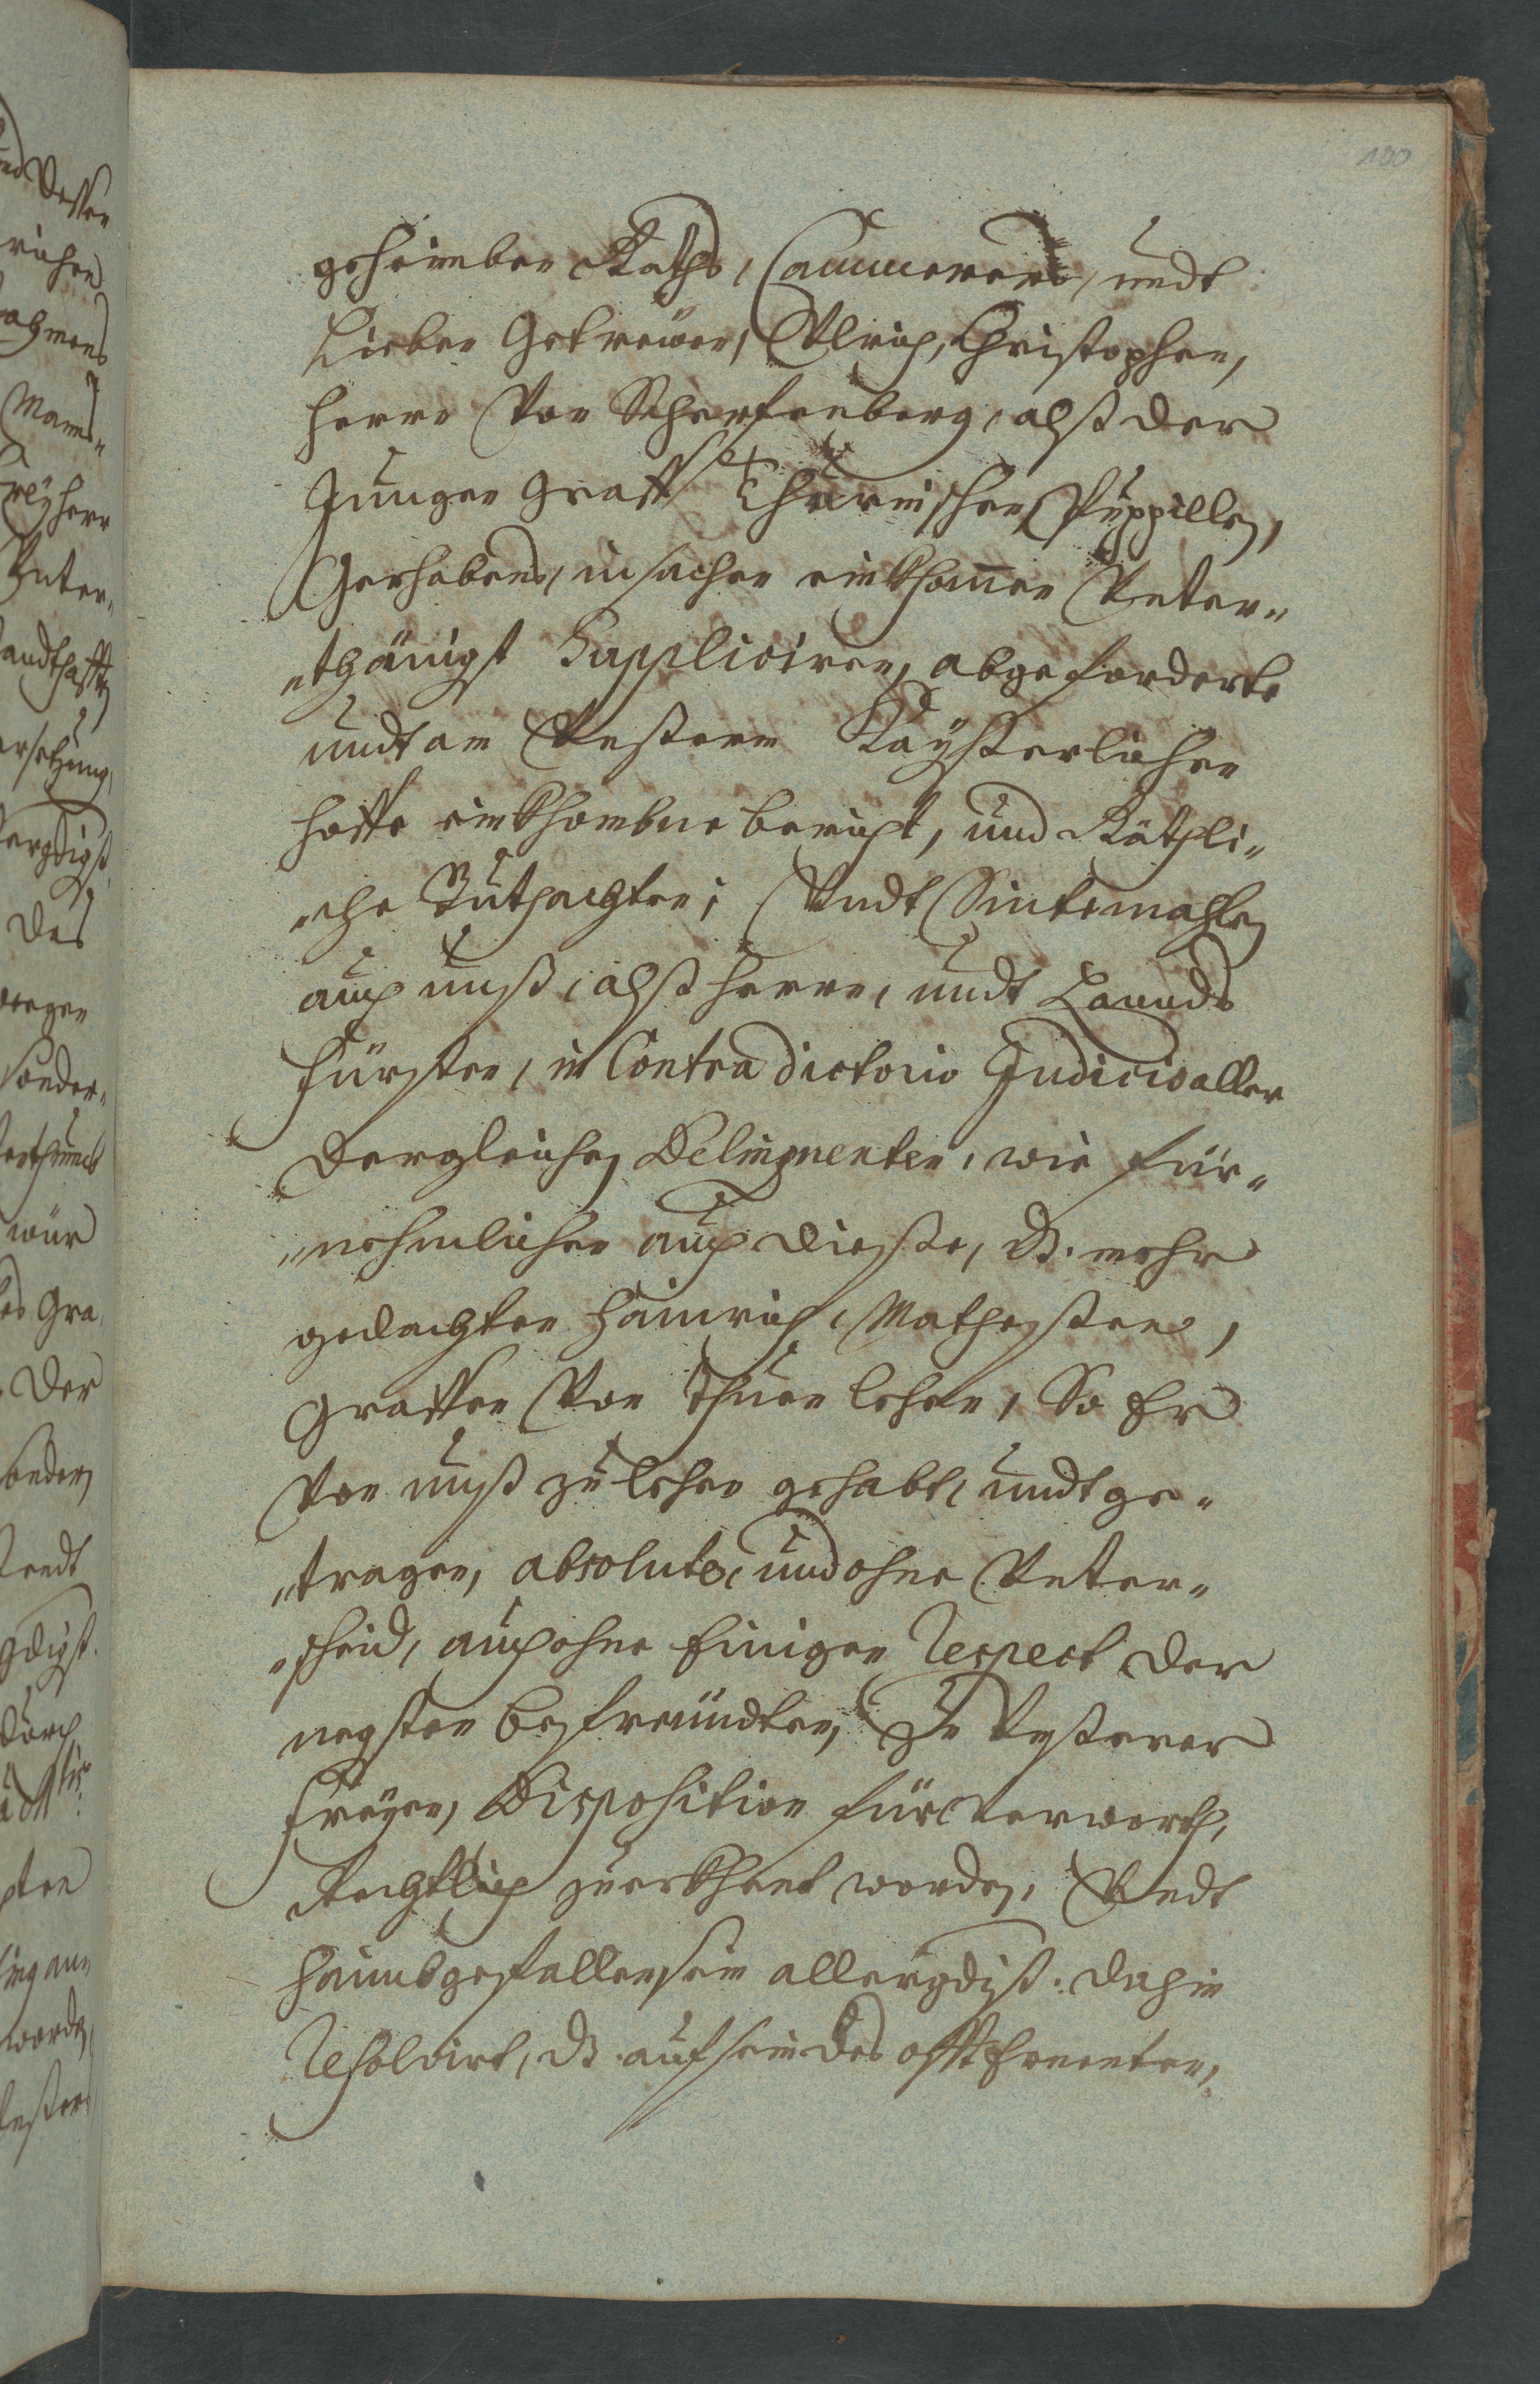 100
geheimben Raths, Cammerers, undt
Lieben Getrewen, Ulrich, Christophen,
Herrn Von Scherfenberg, alß der
Jungen Graff Thürnischen Puppillen,
Gerhabens, in sachen einkhom̅en Unter„
„thänigst Suppliciren, abgeforderte
undt am Unßerm Kaÿßerlichen
hoffe einkhombne bericht, und Räthli„
„che Gutachten; Undt Sintemahlen
auch unß, alß Herrn, undt Lannds
Fürsten, in Contradictorio Judicio aller
dergleichen Delinquenten, wie für„
„nehmlichen auch dießes, d. mehr
gedachten Hainrich, Mathesßen,
Graffen Von Thurn lehen, So Er
Von unß zu lehen gehabt, undt ge„
„tragen, absolute, und ohne Unter„
„scheid, auch ohne Einigen Respect der
negsten befreundten, Zu Unßerer
freyen, Disposition für verworth,
Rechtlich zuerkhent worden, Undt
haimbgefallen sein allergdist. dahin
Resolvirt, d. auf sein des offt Ernenten,
des
der
wür